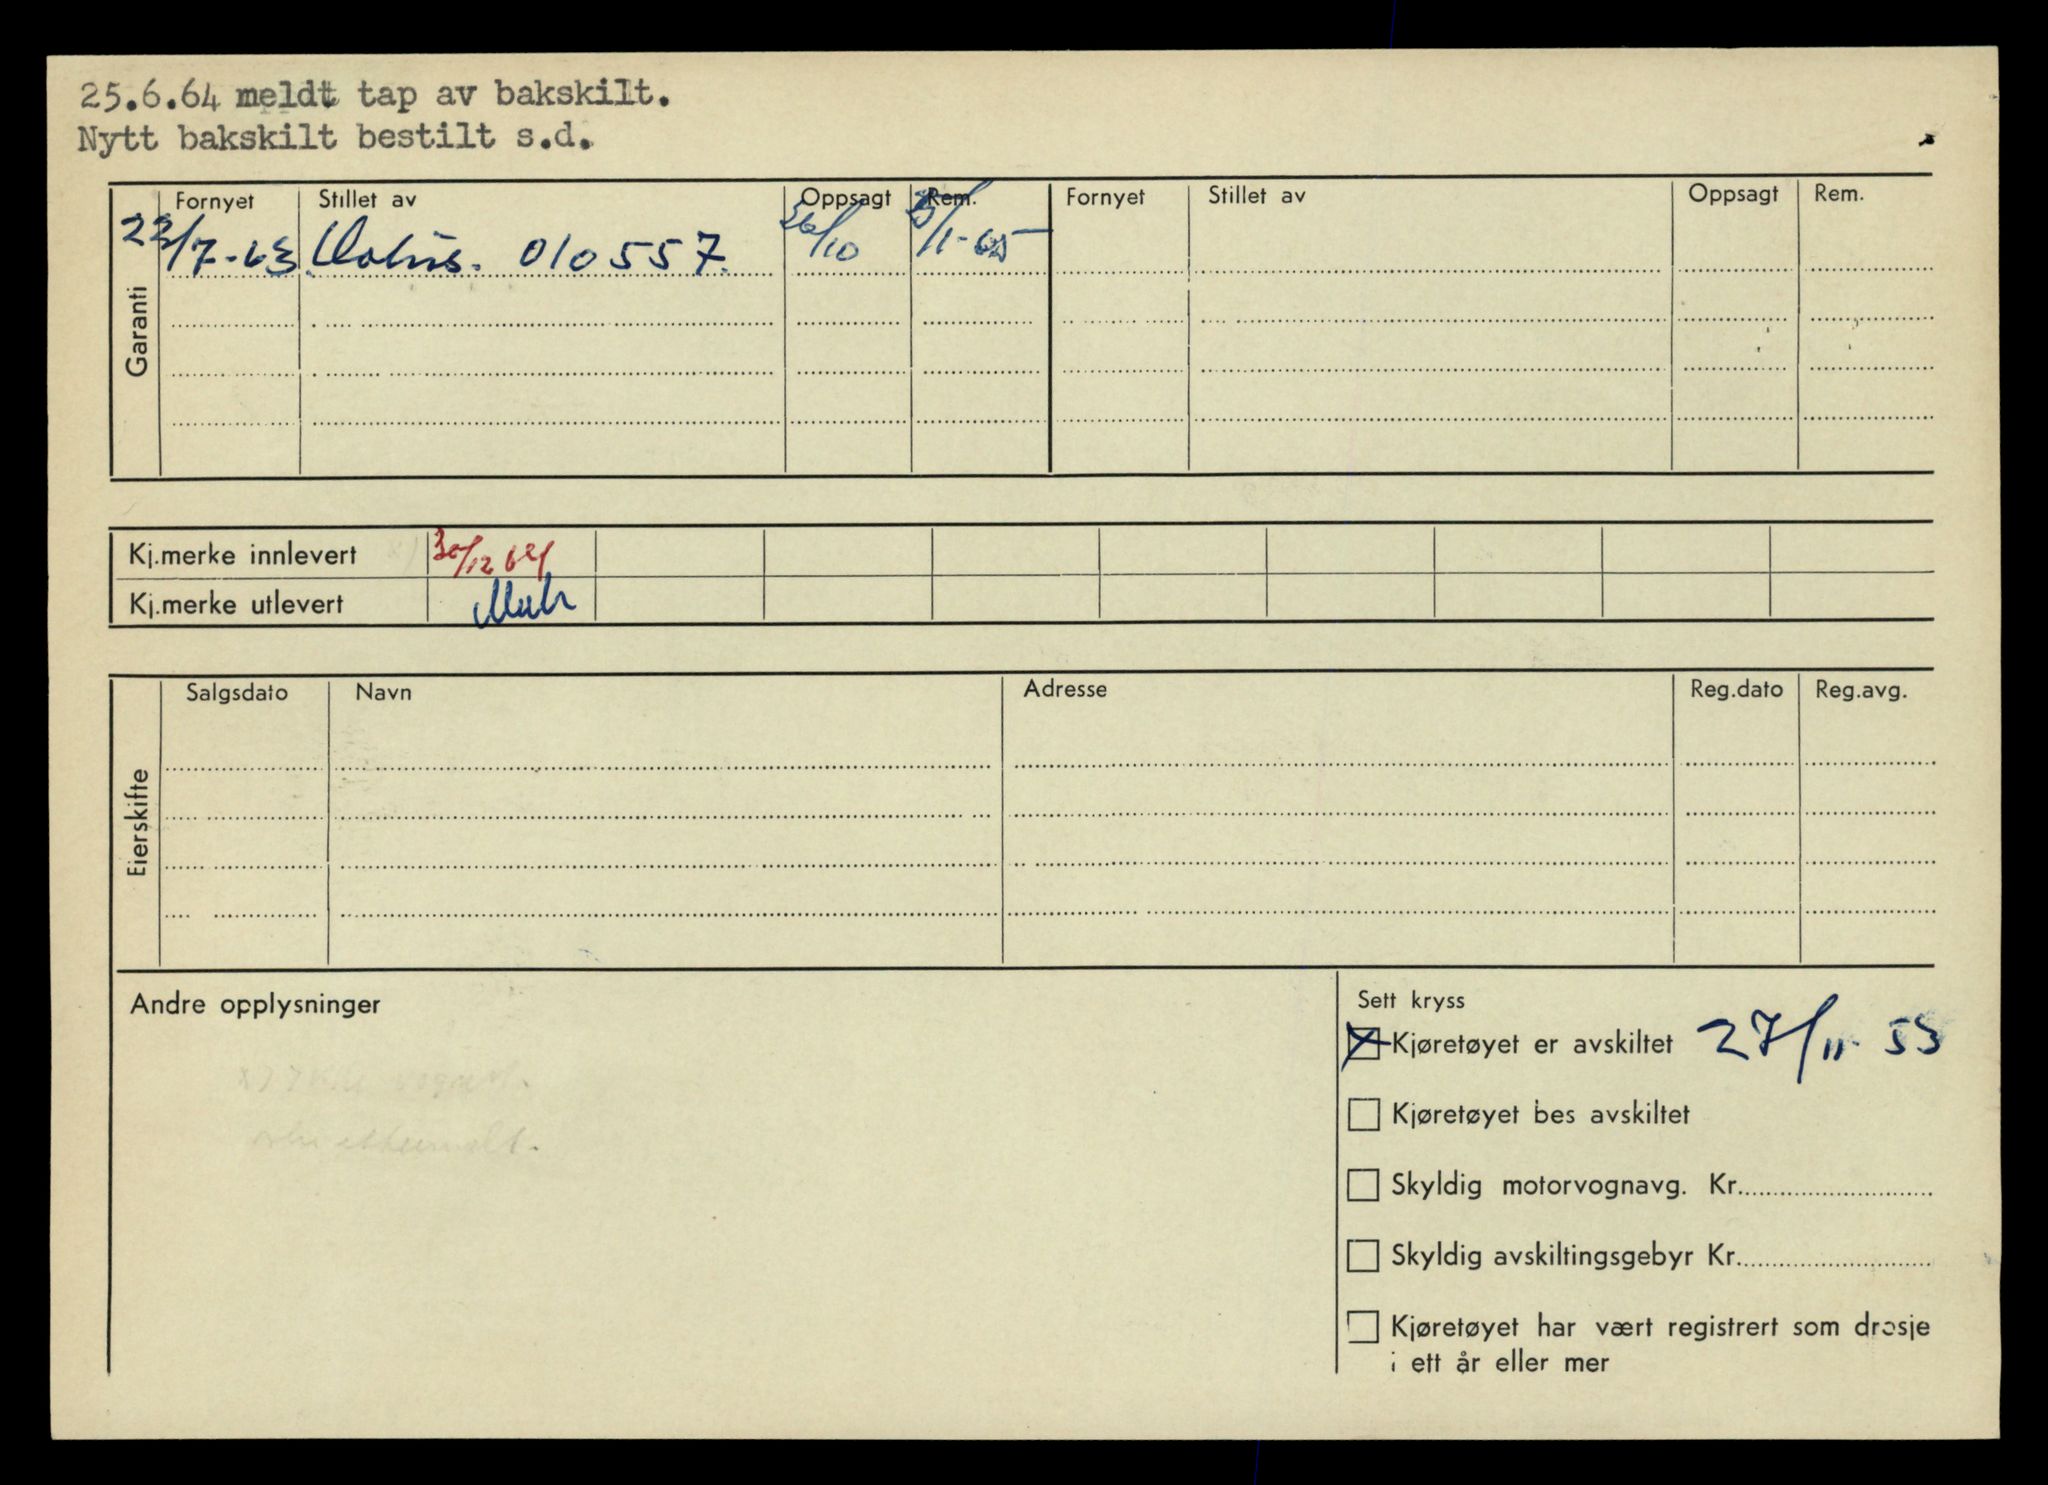 25.6.64 meldt tap av bakskilt.
Nytt bakskilt bestilt s.d.
Garanti
Fornyet Stillet av Oppsagt Rem. Fornyet Stillet av Oppsagt Rem.
22/7-63 010557 30/10 /1-65
Kj.merke innlevert 30/12 64
Kj.merke utlevert
Eierskifte
Salgsdato Navn Adresse Reg.dato Reg.avg.
Andre opplysninger
Sett kryss
Kjøretøyet er avskiltet 27/11-53
Kjøretøyet bes avskiltet
Skyldig motorvognavg. Kr.
Skyldig avskiltingsgebyr Kr.
Kjøretøyet har vært registrert som drosje
i ett år eller mer